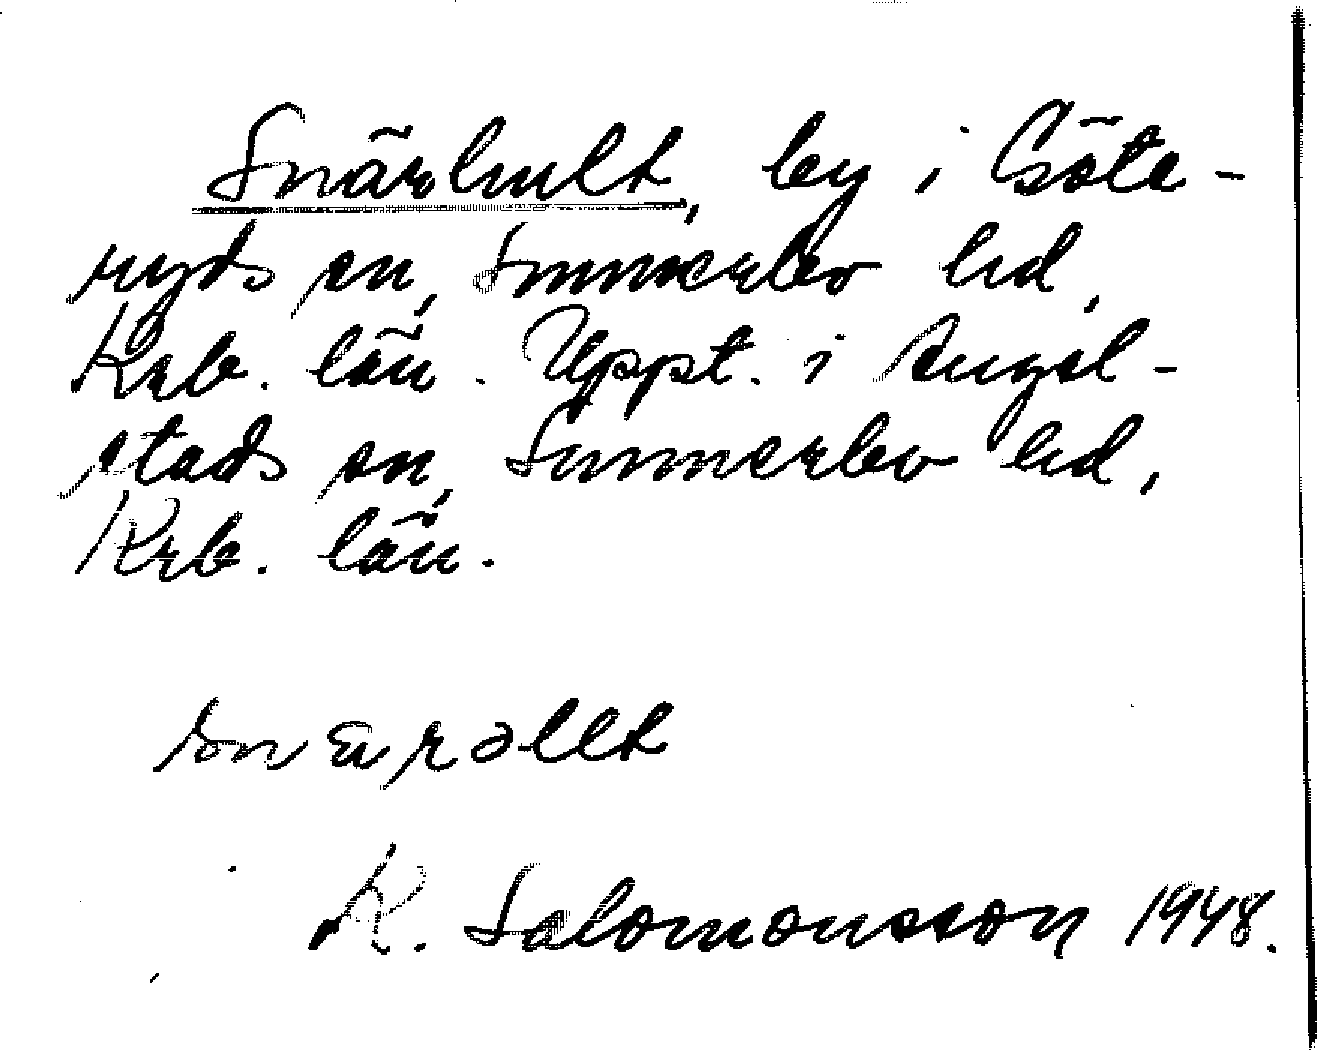 Snärhult, by i Göte-
ryds sn, Sunnerbo hd,
Krb. län. Uppt. i Angel-
stads sn, Sunnerbo hd,
Krb. län.
snärəllt
K. Salomonsson 1948.